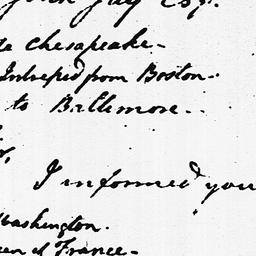 Jay Esqr.
Chesapeake-
Intrepid from Boston-
to Baltimore-
I informed you
Washington.
of France-